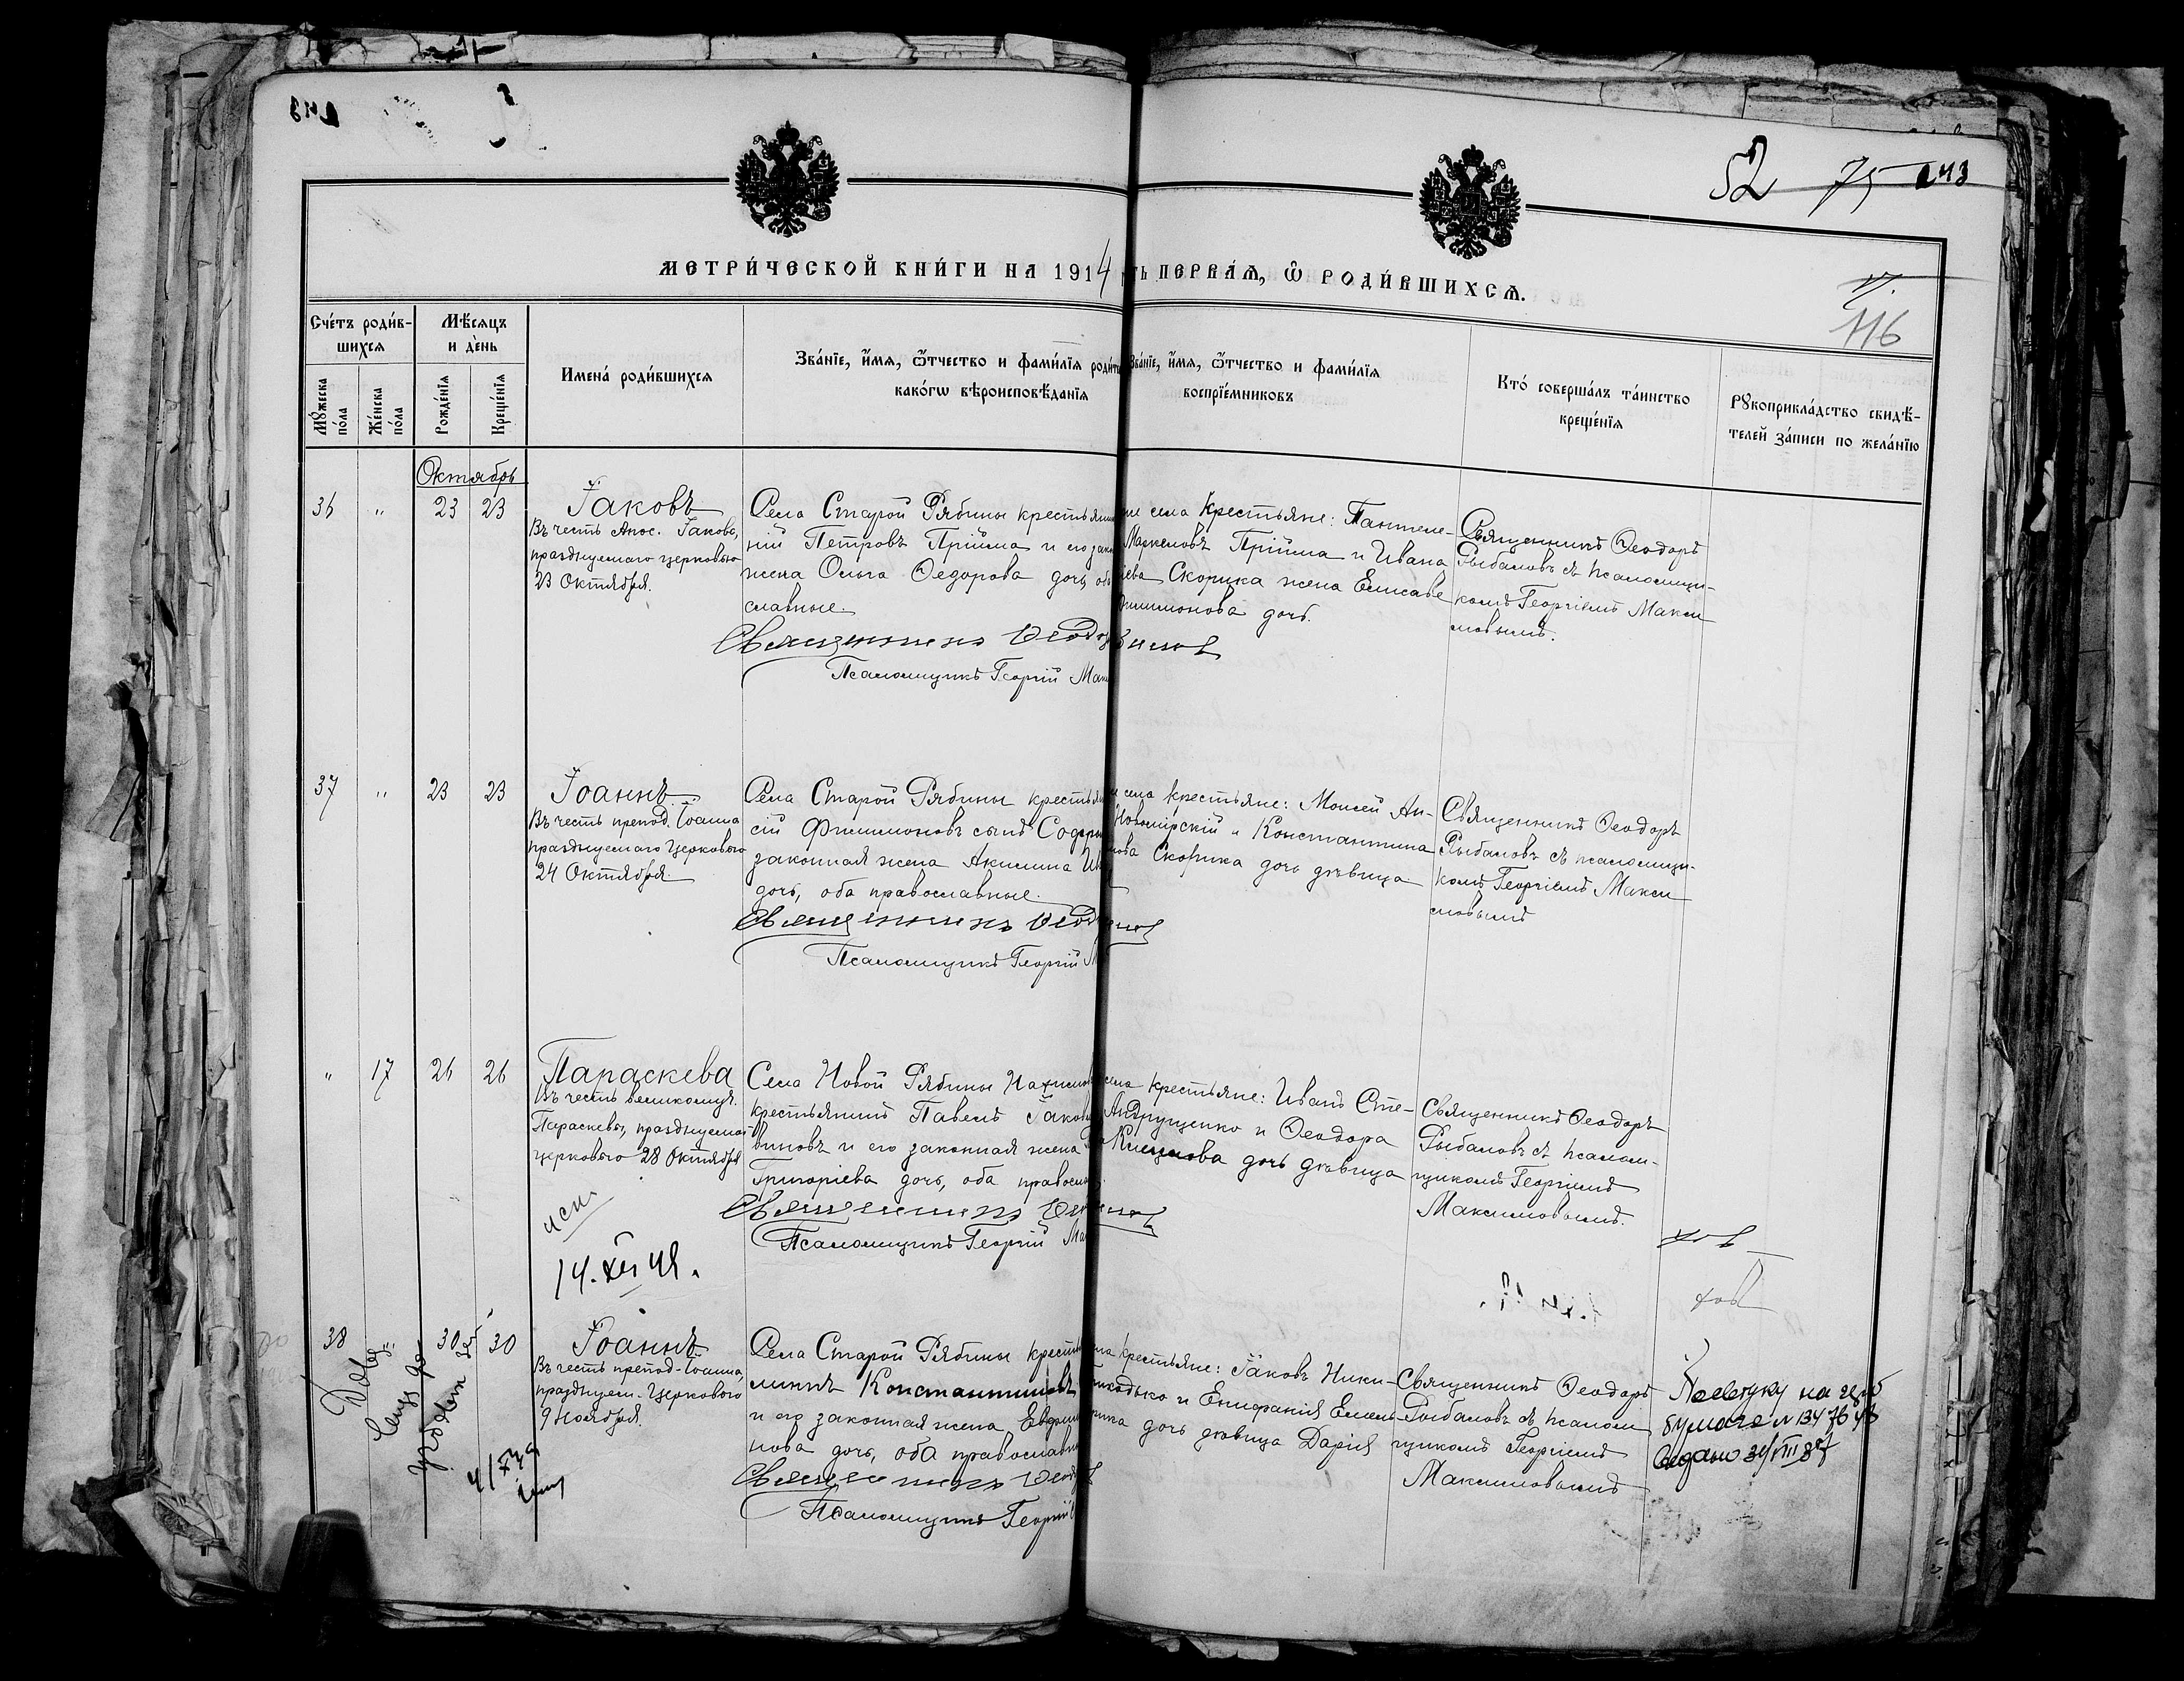 52 75 143
МЕТРИ́ЧЕСКОЙ КНИ́ГИ НА 1914
ТЬ ПЕРВА́Я, Ѡ҆ РОДИ́ВШИХСЯ.
116
Сче́тъ роди́в-
шихся
Мꙋ́жеска
по́ла
Же́нска
по́ла
Мѣ́сяцъ
и де́нь
Рожде́нїя
Креще́нїя
Имена́ роди́вшихся
Зва́нїе, и҆́мя, ѻ҆́тчество и фами́лїя роди́т
како́гѡ вѣроисповѣ́данїя
Зва́нїе, и҆́мя, ѻ҆́тчество и фами́лїя
воспрїе́мниковъ
Кто́ соверша́лъ та́инство
креще́нїя
Рꙋкоприкла́дство свидѣ́-
телей за́писи по жела́нїю
Октябрь
36 " 23 23
Іаковъ
Въ честь Апос. Іакова,
празднуемаго церковью
23 Октября.
Села Старой Рябины крестьянин
ній Петровъ Прійма и его зак
жена Ольга Ѳедорова дочь, об
славные.
Священникъ Ѳеодо
Псаломщикъ Георгій Мак
села крестьяне: Пантеле-
Маркеловъ Прійма и Ивана
іева Скорика жена Елисаве
Филимонова дочь.
Священникъ Ѳеодоръ
Рыбаловъ съ псаломщи-
комъ Георгіемъ Макси
мовымъ.
37 " 23 23
Іоаннъ
Въ честь препод. Іоанна
празднуемаго церковью
24 Октября.
Села Старой Рябины крестьян
сій Филимоновъ сынъ
законная жена Акилина Ив
дочь, оба православные.
Священникъ Ѳеод
Псаломщикъ Георгій М
села крестьяне: Моисей Ан-
Новомірскій и Константина
нова Скорика дочь дѣвица
Священникъ Ѳеодоръ
Рыбаловъ съ псаломщи-
комъ Георгіемъ Макси
мовымъ
" 17 26 26
Параскева
Въ честь великомуч.
Параскевы, празднуемой
церковью 28 Октября
14. XII 48.
Села Новой Рябины
крестьянинъ Павелъ Іаков
виновъ и его законная жена
Григоріева дочь, оба правосла
Священникъ Ѳео
Псаломщикъ Георгій Ма
села крестьяне: Иванъ Сте-
Андрущенко и Ѳеодора
дочь дѣвица
Священникъ Ѳеодоръ
Рыбаловъ съ псалом-
щикомъ Георгіемъ
Максимовымъ.
38 " 30 30
Іоаннъ
Въ честь препод. Іоанна,
празднуем. церковью
9 Ноября.
Села Старой Рябины крест
Константиновъ
и его законная жена Евдоки
нова дочь, оба православн
Священникъ Ѳеод
Псаломщикъ Георгій
крестьяне: Іаковъ Ники-
и Епифанія Емель
дочь дѣвица Дарія
Священникъ Ѳеодоръ
Рыбаловъ съ псалом
щикомъ Георгіемъ
Максимовымъ
на герб
бумаге N 1347648